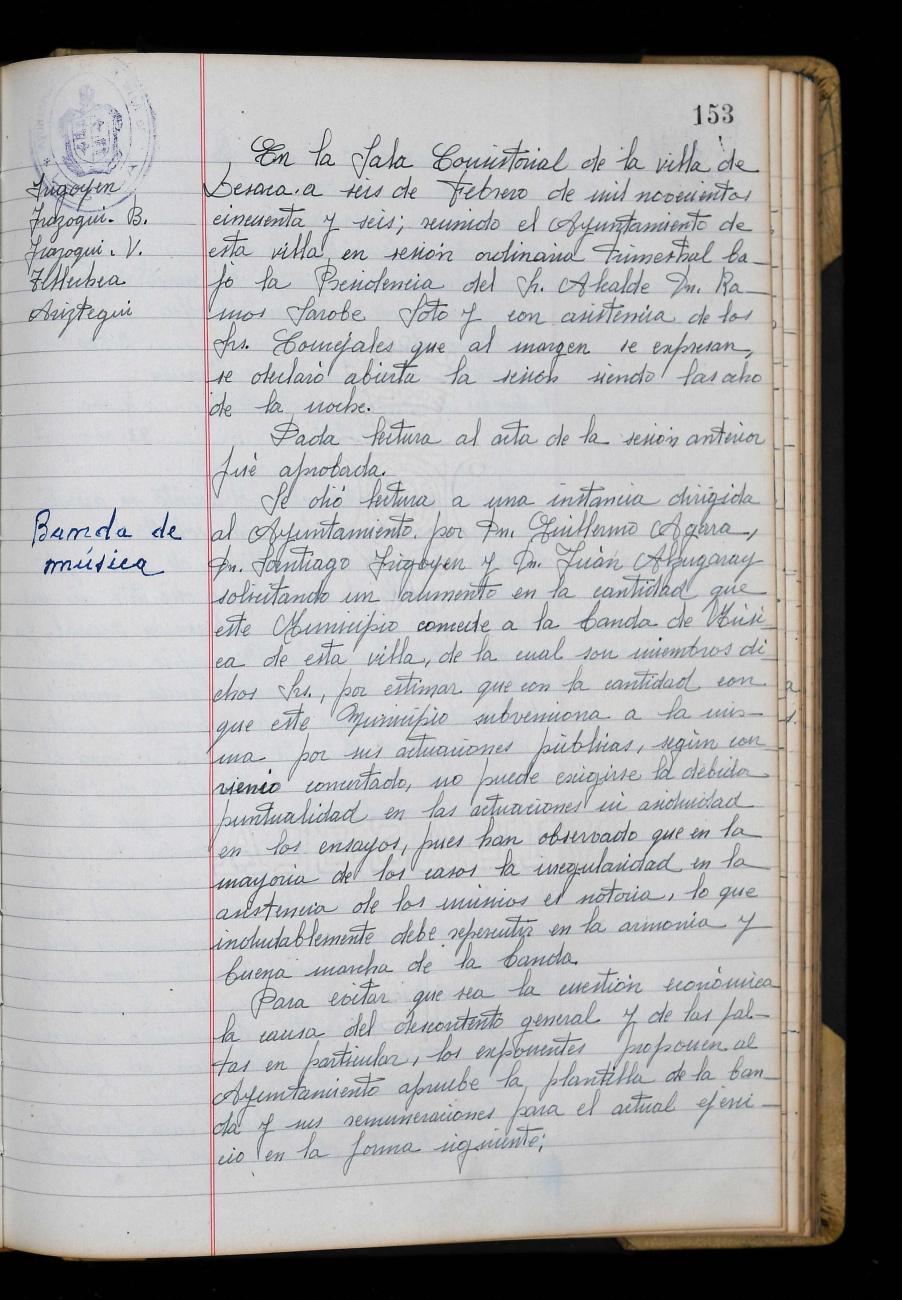 153
Irigoyen
Irazoqui. B.
Irazoqui. V.
Telletxea
Ariztegui
En la Sala Consistorial de la villa de
Lesaca, a seis de Febrero de mil novecientos
cincuenta y seis; reunido el Ayuntamiento de
esta villa, en sesión ordinaria trimestral ba-
jo la Presidencia del Sr. Alcalde Dn. Ra-
mos Sarobe Soto y con asistencia de los
Srs. Concejales que al margen se expresan,
se declaró abierta la sesión siendo las ocho
de la noche.
Dada lectura al acta de la sesión anterior
fué aprobada.
Banda de
música
Se dió lectura a una instancia dirigida
al Ayuntamiento. por Dn. Guillermo Agara,
Dn. Santiago Irigoyen y Dn. Juán Alzugaray
solicitando un aumento en la cantidad que
este Municipio concede a la banda de Músi-
ca de esta villa, de la cual son miembros di-
chos Srs., por estimar que con la cantidad con
que este Municipio subvenciona a la mis-
ma por sus actuaciones públicas, según con
venio concertado, no puede exigirse la debida
puntualidad en las actuaciones ni asiduidad
en los ensayos, pues han observado que en la
mayoria de los casos la irregularidad en la
asistencia de los mismos es notoria, lo que
indudablemente debe repercutir en la armonia y
buena marcha de la banda.
Para evitar que sea la cuestión económica
la causa del descontento general y de las fal-
tas en particular, los exponentes proponen al
Ayuntamiento apruebe la plantilla de la ban-
da y sus remuneraciones para el actual ejerci-
cio en la forma siguiente;